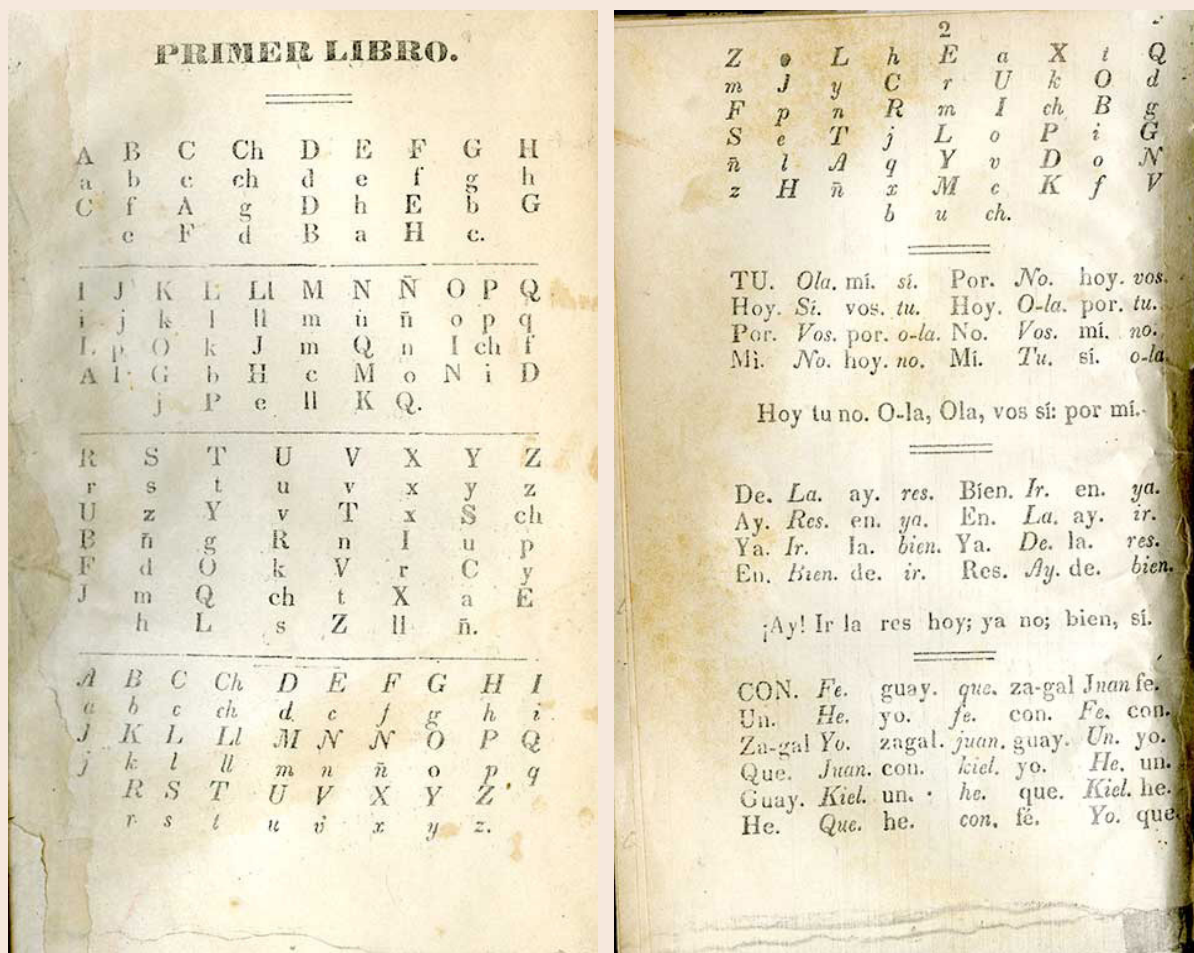 PRIMER LIBRO.
A B C Ch D E F G H
a b c ch d e f g h
C f A g D h E b G
e F d B a H c.
I J K L Ll M N Ñ O P Q
i j k l ll m n ñ o p q
L p O k J m Q n I ch f
A l G b H c M o N i D
j P e ll K Q.
R S T U V X Y Z
r s t u v x y z
U z Y v T x S ch
B ñ g R n I u p
F d O k V r C y
J m Q ch t X a E
h L s Z ll ñ.
A B C Ch D E F G H I
a b c ch d e f g h i
J K L Ll M N N O P Q
j k l ll m n ñ o p q
R S T U V X Y Z
r s t u v x y z.
2
Z L h E a X t Q
m J y C r U k O d
F p n R m I ch B g
S e T j L o P i G
ñ l A q Y v D o N
z H ñ x M c K f V
b u ch.
TU. Ola. mí. sí. Por. No. hoy. vos.
Hoy. Sí. vos. tu. Hoy. O-la. por. tu.
Por. Vos. por. o-la. No. Vos. mí. no.
Mì. No. hoy. no. Mí. Tu. sí. o-la.
Hoy tu no. O-la, Ola, vos sí: por mí.
De. La. ay. res. Bien. Ir. en. ya.
Ay. Res. en. ya. En. La. ay. ir.
Ya. Ir. la. bien. Ya. De. la. res.
En. Bien. de. ir. Res. Ay. de. bien.
¡Ay! Ir la res hoy; ya no; bien, sí.
CON. Fe. guay. que. za-gal Juan fe.
Un. He. yo. fe. con. Fe. con.
Za-gal Yo. zagal. juan. guay. Un. yo.
Que. Juan. con. kiel. yo. He. un.
Guay. Kiel. un. he. que. Kiel. he.
He. Que. he. con. fé. Yo. que